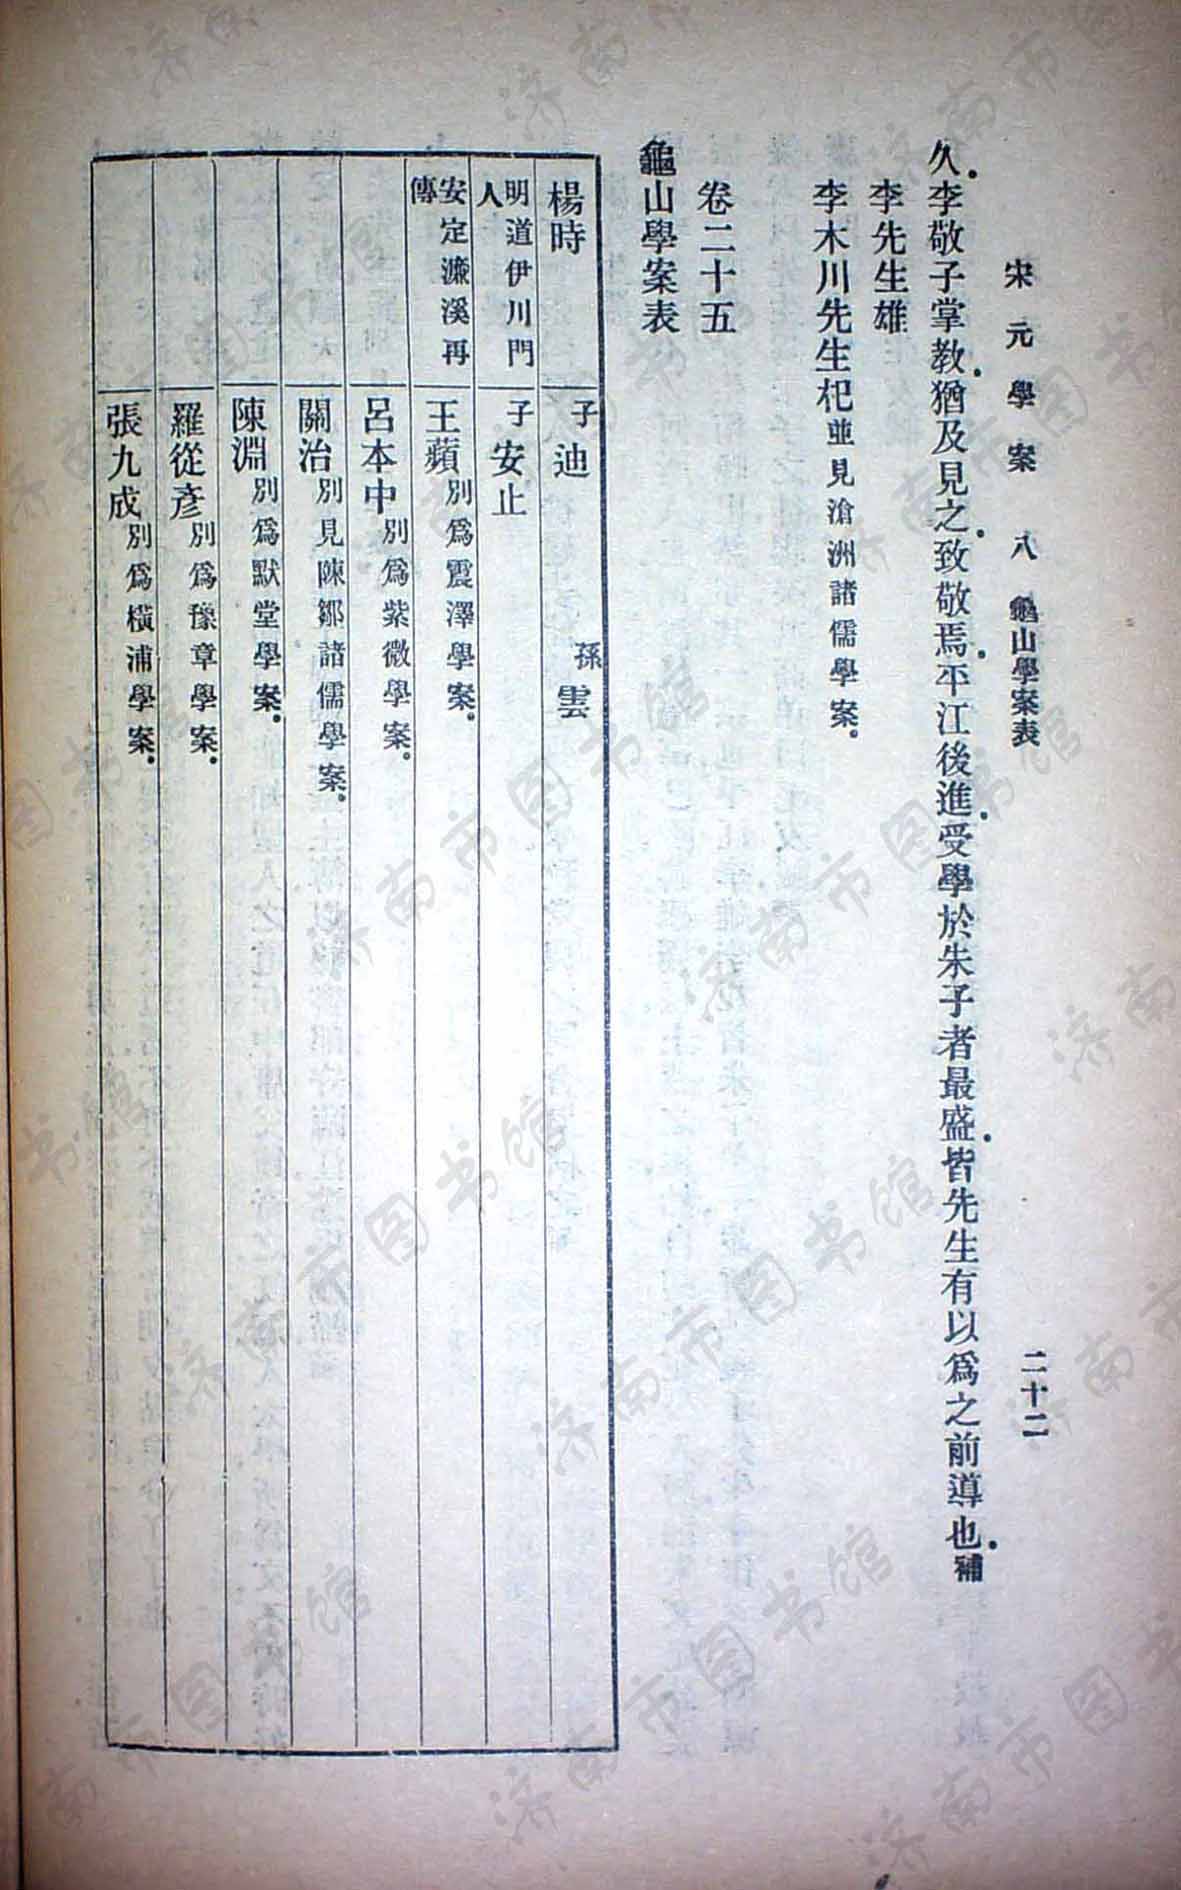 宋元學案 八 龜山學案表 二十二
久。李敬子掌教。猶及見之。致敬焉。平江後進。受學於朱子者最盛。皆先生有以爲之前導也。補
李先生雄
李木川先生杞並見滄洲諸儒學案。
卷二十五
龜山學案表
楊時 子迪 孫雲
明道伊川門人 子安止
安定濂溪再傳 王蘋別爲震澤學案。
呂本中別爲紫微學案。
關治別見陳鄒諸儒學案。
陳淵別爲默堂學案。
羅從彥別爲豫章學案。
張九成別爲橫浦學案。
济南市图书馆